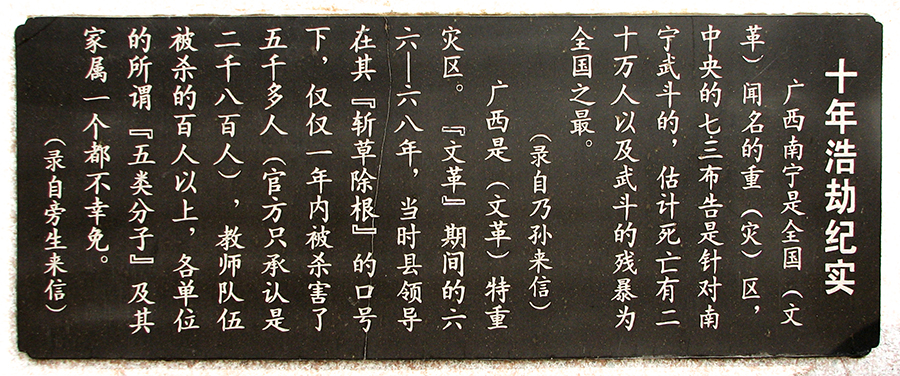 十年浩劫纪实
广西南宁是全国（文
革）闻名的重（灾）区，
中央的七三布告是针对南
宁武斗的，估计死亡有二
十万人以及武斗的残暴为
全国之最。
（录自乃孙来信）
广西是（文革）特重
灾区。『文革』期间的六
六—六八年，当时县领导
在其『斩草除根』的口号
下，仅仅一年内被杀害了
五千多人（官方只承认是
二千八百人），教师队伍
被杀的百人以上，各单位
的所谓『五类分子』及其
家属一个都不幸免。
（录自旁生来信）